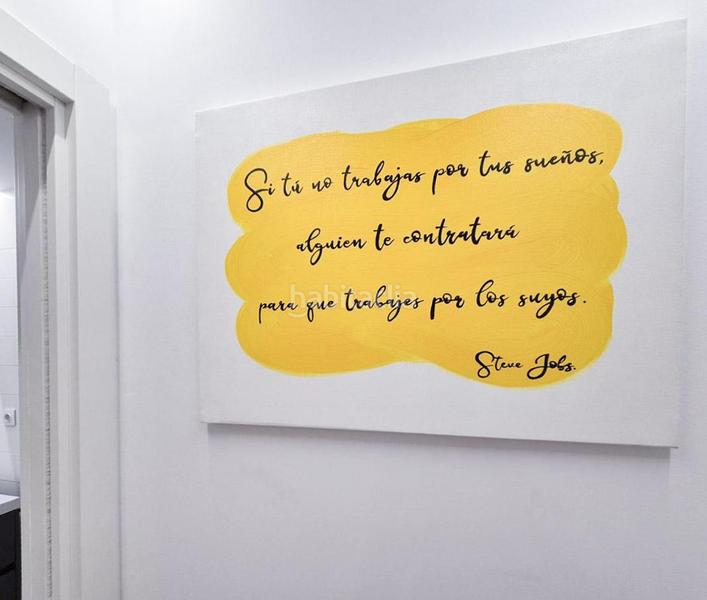 Si tú no trabajas por tus sueños,
alguien te contratará
para que trabajes por los suyos.
Steve Jobs.
habitaclia